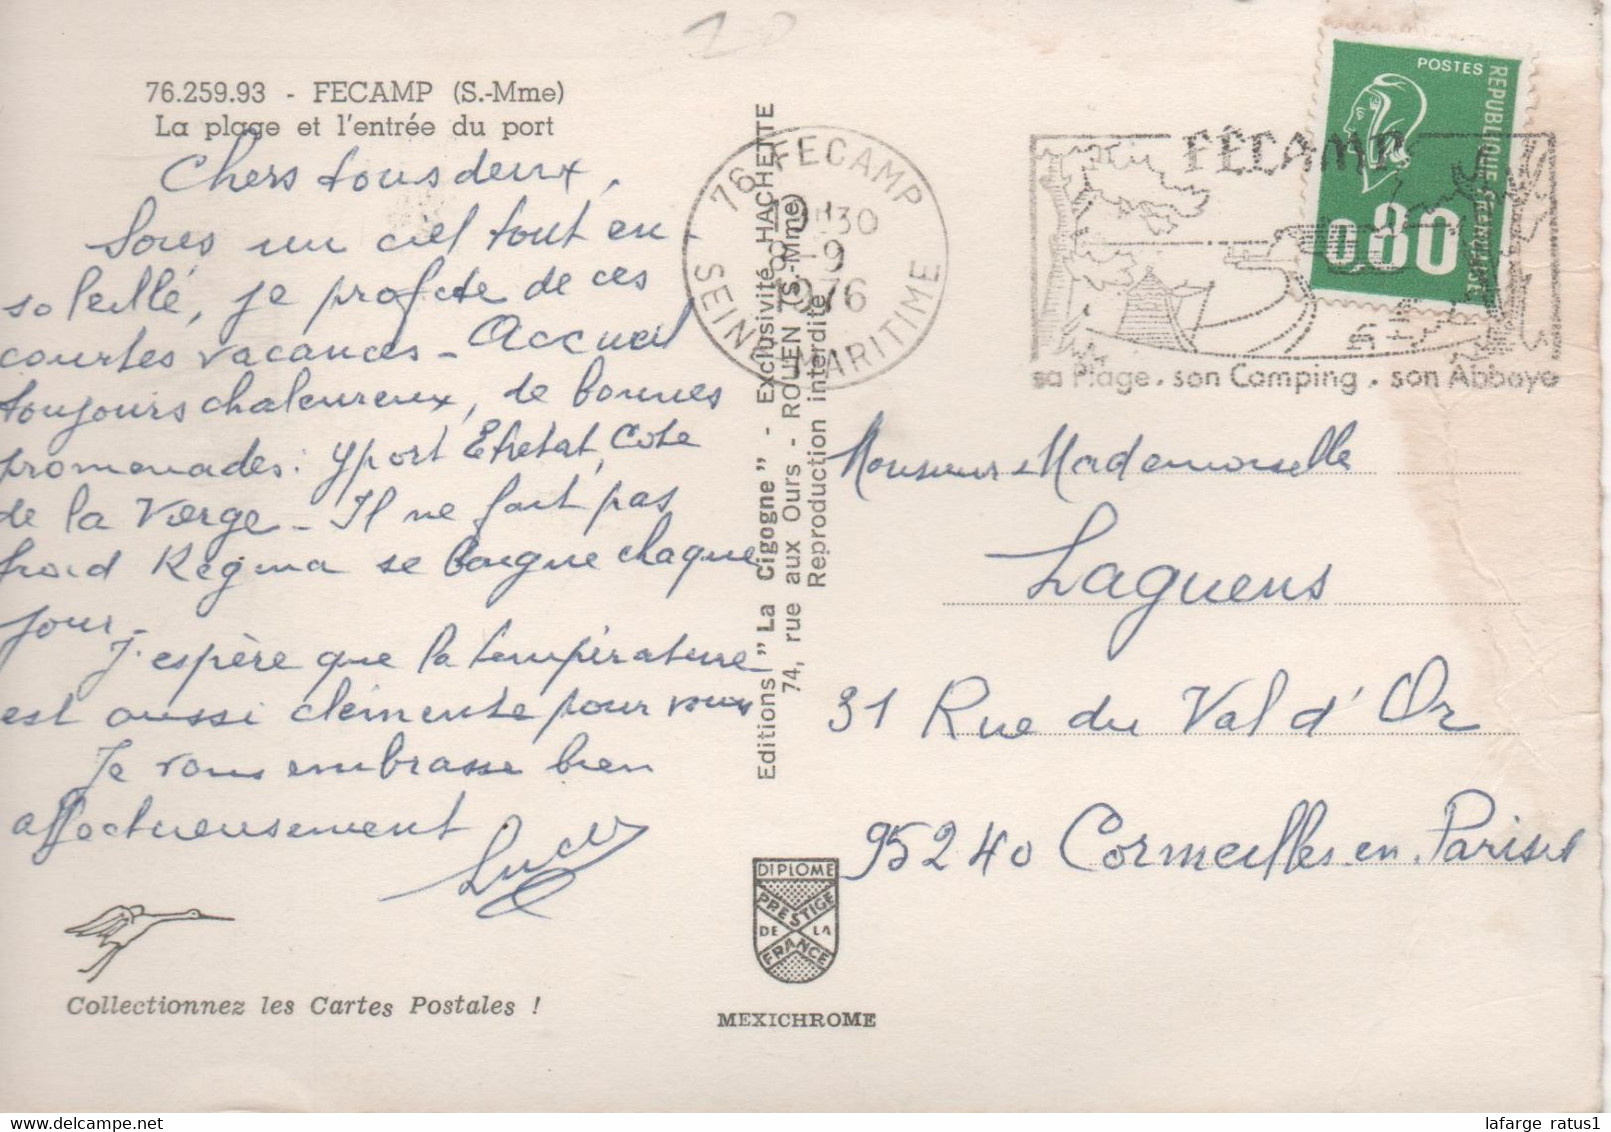 76.259.93 - FECAMP (S.-Mme)
La plage et l'entrée du port
Chers tous deux,
Sous un ciel tout en-
soleillé, je profite de ces
courtes vacances - Accueil
toujours chaleureux, de bonnes
promenades : Yport Etretat, Cote
de la Vierge - Il ne fait pas
froid Regina se baigne chaque
jour -
J'espère que la température
est aussi clémente pour vous
Je vous embrasse bien
affectueusement
Collectionnez les Cartes Postales !
Editions "La Cigogne" - Exclusivité HACHETTE
74, rue aux Ours - ROUEN (S.-Mme)
Reproduction interdite
DIPLOME
PRESTIGE
DE LA
FRANCE
MEXICHROME
76 FECAMP
H30
9
1976
SEINE MARITIME
FÉCAMP
sa Plage. son Camping. son Abbaye
POSTES
REPUBLIQUE FRANCAISE
0,80
Monsieur Mademoiselle
Laguens
31 Rue du Val d'Or
95240 Cormeilles en Parisis
lafarge ratus1